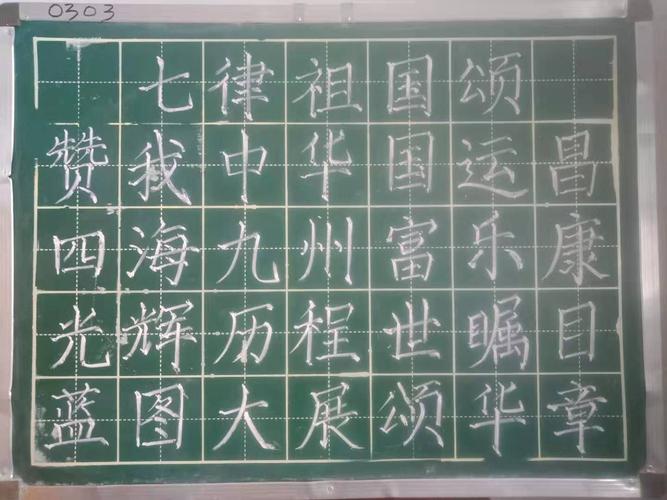 0303
七律祖国颂
赞我中华国运昌
四海九州富乐康
光辉历程世瞩目
蓝图大展颂华章